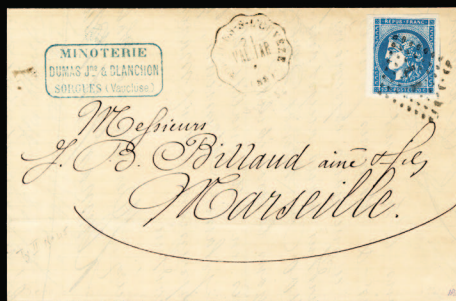 MINOTERIE
DUMAS Jne & BLANCHON
SORGUES (Vaucluse)
REPUB. FRANC.
Messieurs
J. B. Billaud ainé & fils
Marseille.